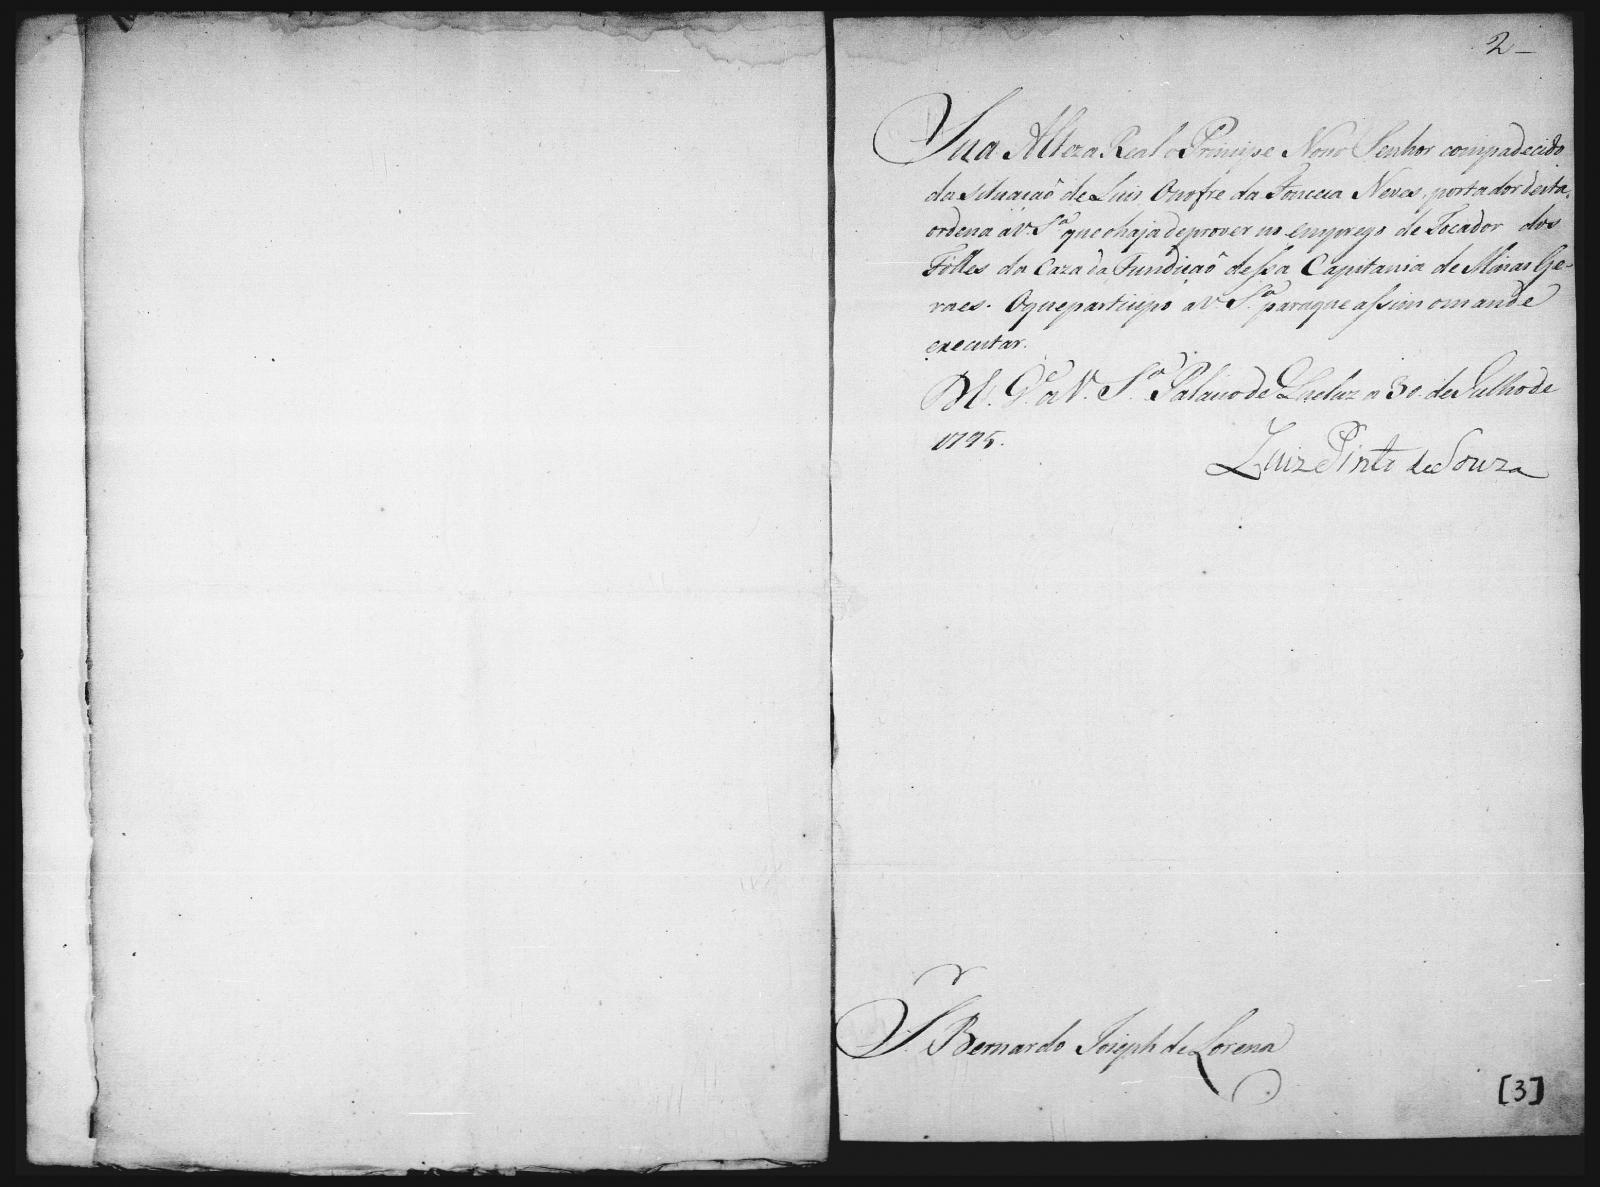 2-
Sua Alteza Real o Principe Nosso Senhor compadecido
da situaçaõ de Luis Onofre da Fonceca Neves, portador desta,
ordena a V. S.ª que o haja de prover no emprego de Tocador dos
Folles da Caza da Fundiçaõ dessa Capitania de Minas Ge-
raes. O que participo a V. S.ª para que assim o mande
executar.
D.s G.e a V. S.ª Palacio de Queluz a 30. de Julho de
1795.
Luiz Pinto de Souza
S.r Bernardo Joseph de Lorena
[3]